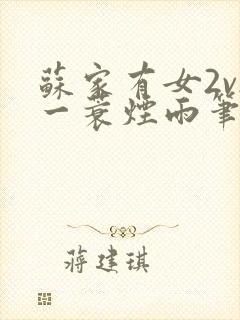 蘇家有女2v
一蓑煙雨筆
蔣建琪